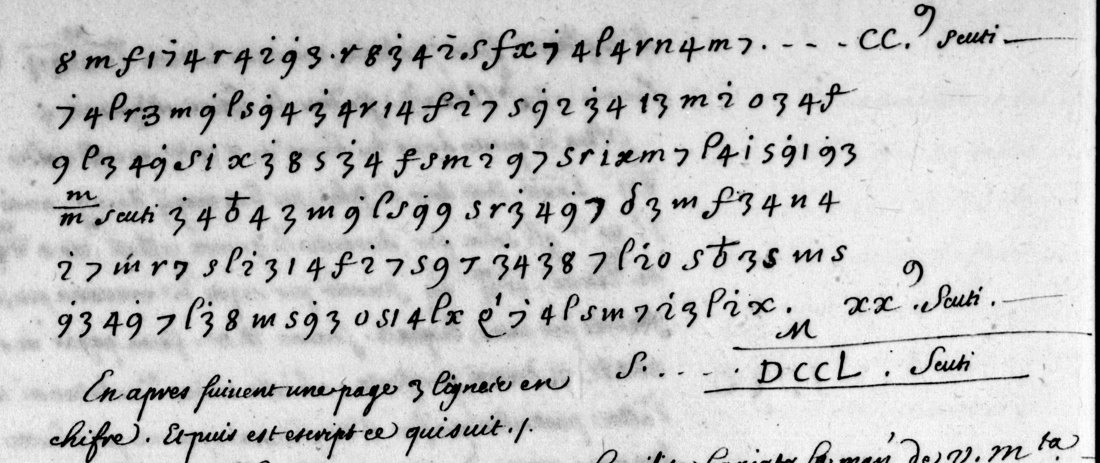 8 m f 1 7̇ 4 r 4 2̇ 9̇ 3 · r 8 3̇ 4 2̇ . s f x 7̇ 4 l 4 r n 4 m 7 . - - - CC.⁹ scuti
7̇ 4 l r 3 m 9̇ l s 9̇ 4 3̇ 4 r 1 4 f 2̇ 7 s 9̇ 2 3̇ 4 1 3 m 2̇ 0 3 4 f
9 l 3̇ 4 9̇ s i x 3̇ 8 s 3̇ 4 f s m 2̇ 9̇ 7 s r i x m 7 l 4 i s 9̇ 1 9̇ 3
m/m scuti 3̇ 4 ƀ 4 3 m 9̇ l s 9̇ 9 s r 3̇ 4 9̇ 7 δ 3 m f 3 4 n 4
2̇ 7 ṁ r 7 s l 2̇ 3 1 4 f 2̇ 7 s 9 7 3̇ 4 3̇ 8 7 l 2̇ 0 s ƀ 3 s m s
9 3 4 9̇ 7 l 3̇ 8 m s 9̇ 3 0 s 1 4 l x e' 7̇ 4 l s m 7 2̇ 3 l i x . xx⁹ . Scuti .
M
S. . . . . DCCL . Scuti
En apres suivent une page 3 ligne en
chifre. Et puis est escript ce qui suit ./.
de V. M.ta